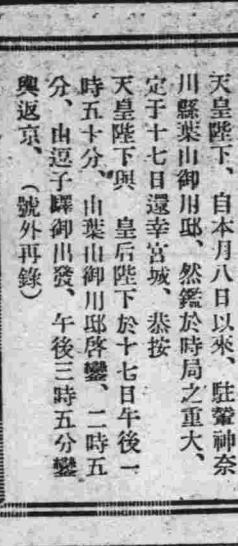 天皇陛下、自本月八日以來、駐輦神奈
川縣葉山御用邸、然鑑於時局之重大、
定于十七日還幸宮城、 恭按、
天皇陛下輿 皇后陛下於十七日午後一
時五十分、由葉山御用邸啓鑾、二時五
分、由逗子驛御出發、午後三時五分鑾
輿返京、 (號外再錄)